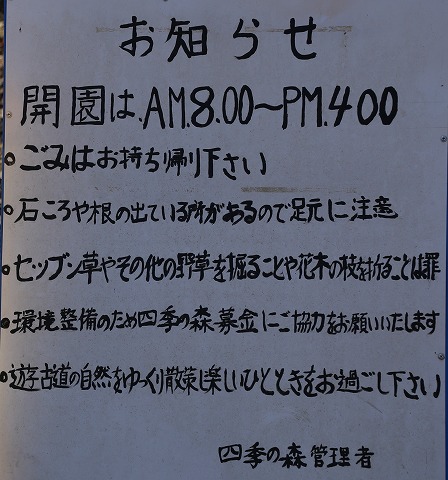 お知らせ
開園は.AM.8.00〜PM.400
•ごみはお持ち帰り下さい
•石ころや根の出ている所があるので足元に注意
•セツブン草やその他の野草を掘ることや花木の枝を折ることは罪
•環境整備のため四季の森募金にご協力をお願いいたします
•遊字古道の自然をゆっくり散策し楽しいひとときをお過ごし下さい
四季の森管理者